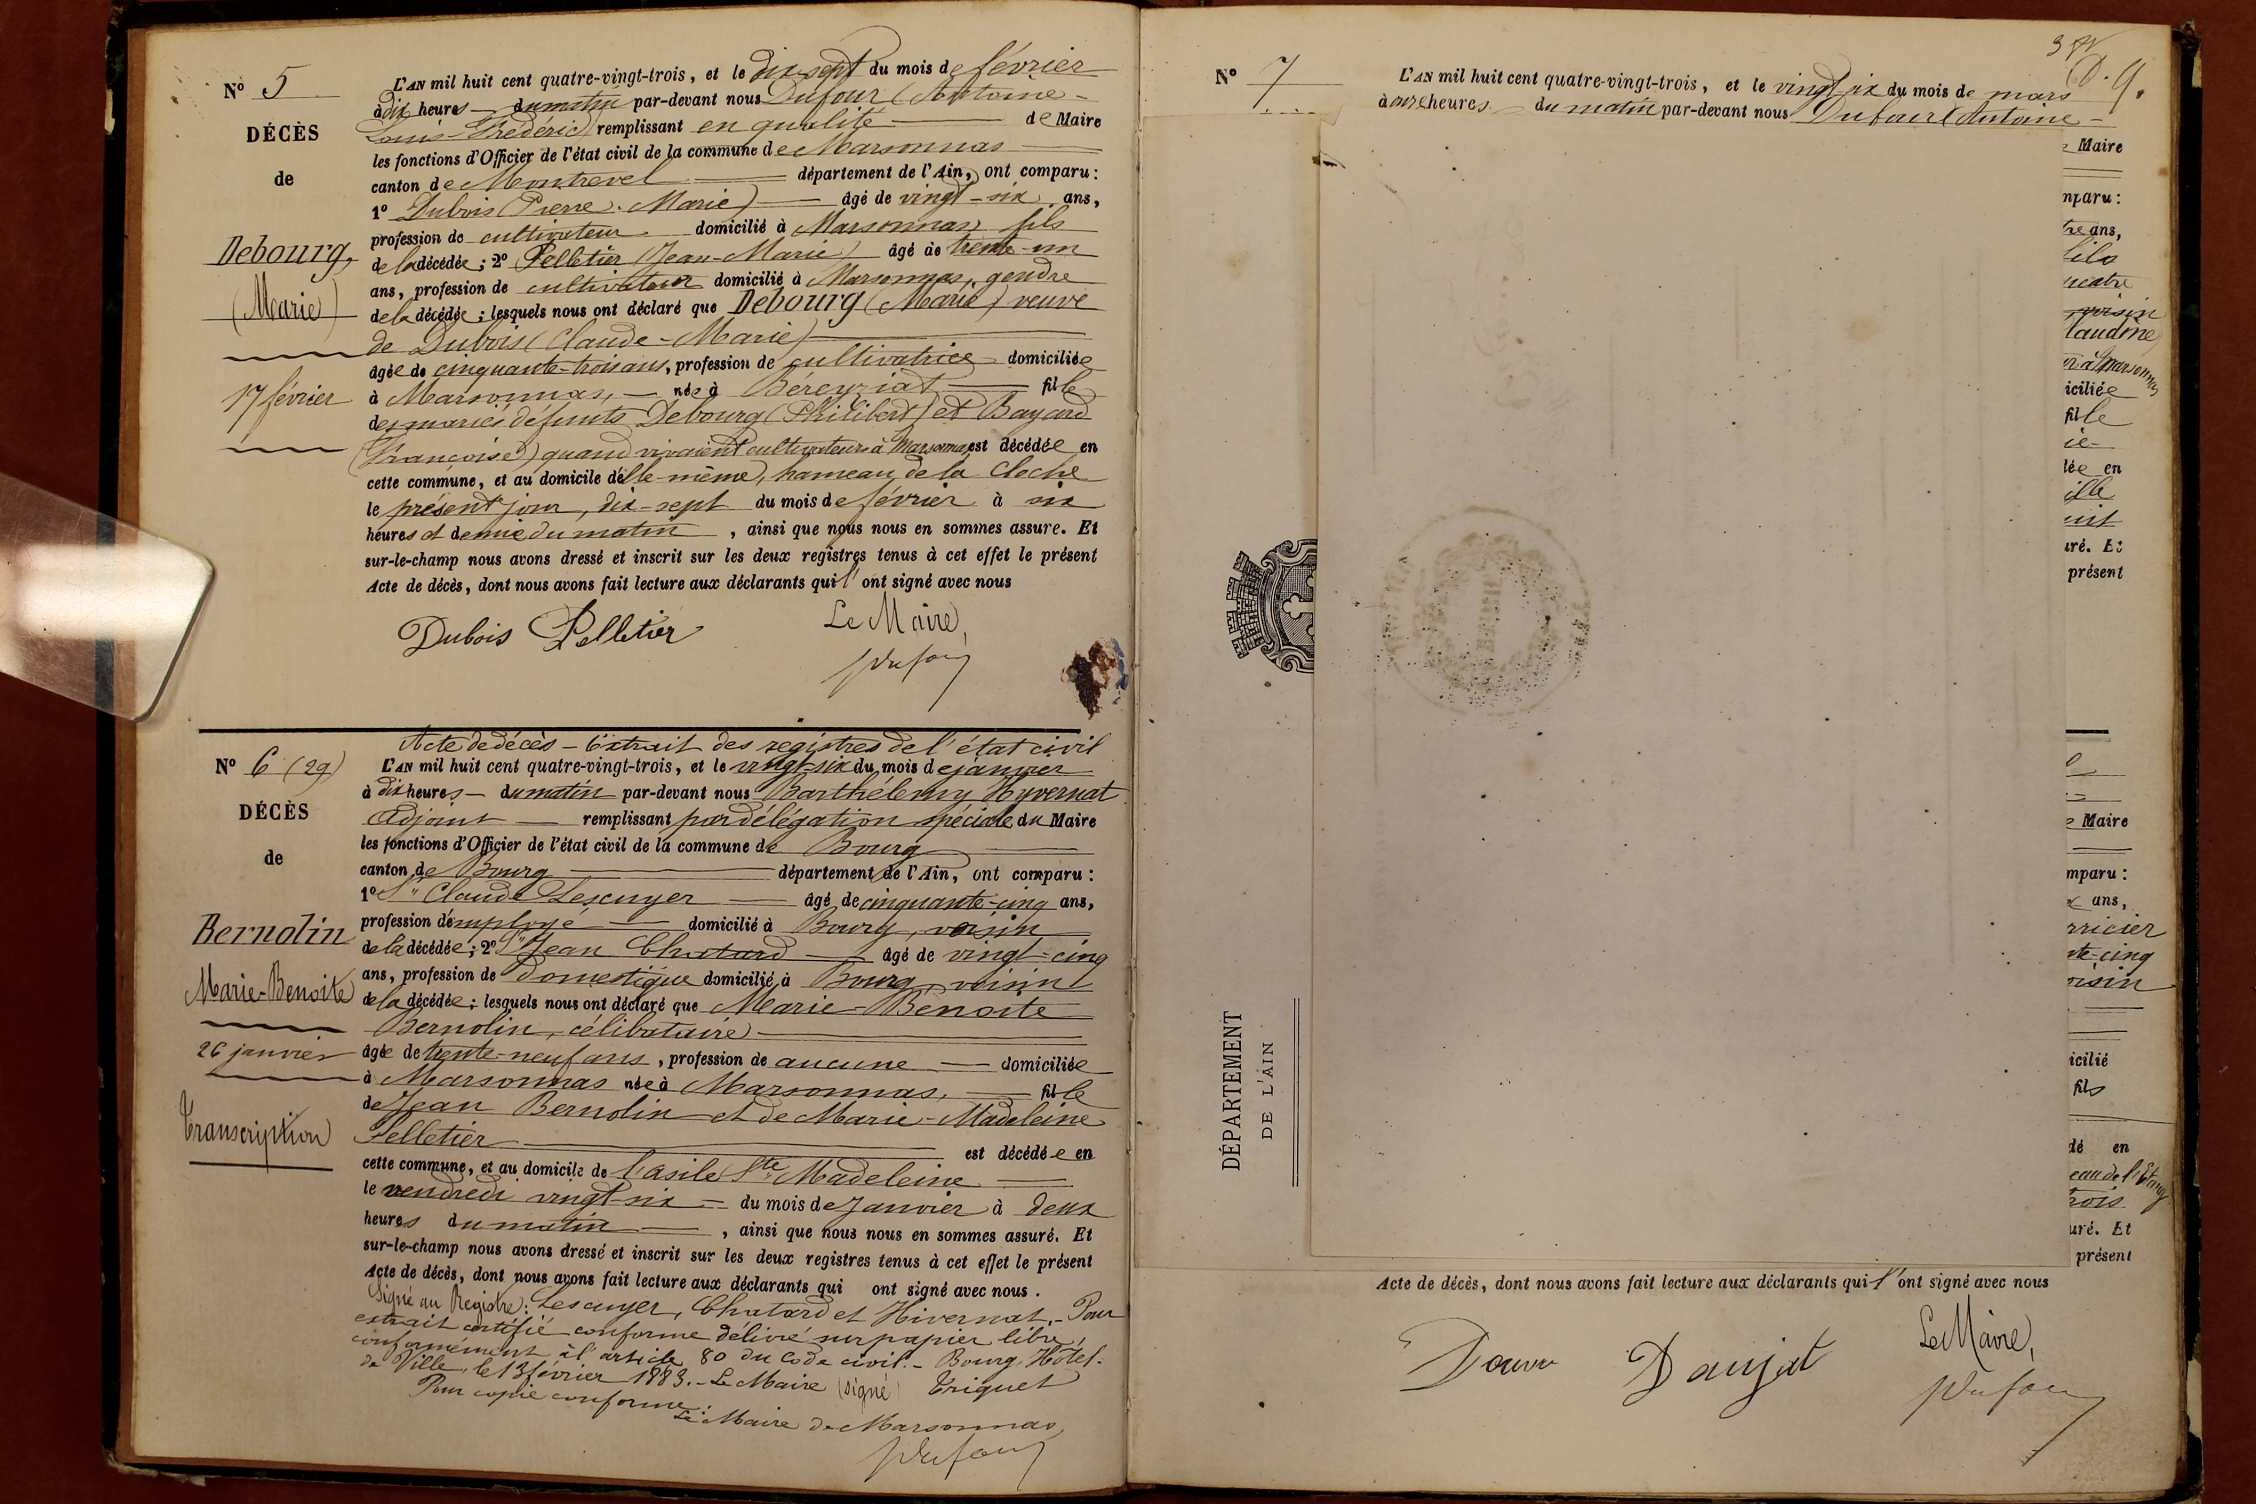 N° 5
DÉCÈS
de
Debourg,
(Marie)
17 février
L'AN mil huit cent quatre-vingt-trois, et le dix-sept du mois de février
à dix heures du matin par-devant nous Dufour (Antoine-
Louis-Frédéric) remplissant en qualité de Maire
les fonctions d'Officier de l'état civil de la commune de Marsonnas
canton de Montrevel département de l'Ain, ont comparu :
1° Dubois (Pierre-Marie) âgé de vingt-six ans,
profession de cultivateur domicilié à Marsonnas, fils
de la décédée ; 2° Pelletier (Jean-Marie) âgé de trente-un
ans, profession de cultivateur domicilié à Marsonnas, gendre
de la décédée ; lesquels nous ont déclaré que Debourg (Marie) veuve
de Dubois (Claude-Marie)
âgée de cinquante-trois ans, profession de cultivatrice domiciliée
à Marsonnas, née à Béreyziat fille
des mariés défunts Debourg (Philibert) et Bayard
(Françoise) quand vivaient cultivateurs à Marsonnas est décédée en
cette commune, et au domicile d'elle-même, hameau de la Cloche
le présent jour, dix-sept du mois de février à six
heures et demie du matin, ainsi que nous nous en sommes assuré. Et
sur-le-champ nous avons dressé et inscrit sur les deux registres tenus à cet effet le présent
Acte de décès, dont nous avons fait lecture aux déclarants qui l'ont signé avec nous
Dubois Pelletier Le Maire,
Dufour
N° 6 (29)
DÉCÈS
de
Bernolin
Marie-Benoite
26 janvier
Transcription
Acte de décès - Extrait des registres de l'état civil
L'AN mil huit cent quatre-vingt-trois, et le vingt-six du mois de janvier
à dix heures - du matin par-devant nous Barthélemy Hyvernat
Adjoint remplissant par délégation spéciale du Maire
les fonctions d'Officier de l'état civil de la commune de Bourg
canton de Bourg département de l'Ain, ont comparu :
1° Sr Claude Lescuyer âgé de cinquante-cinq ans,
profession d'employé domicilié à Bourg, voisin
de la décédée ; 2° Sr Jean Chatard âgé de vingt-cinq
ans, profession de domestique domicilié à Bourg, voisin
de la décédée ; lesquels nous ont déclaré que Marie-Benoite
Bernolin, célibataire
âgée de trente-neuf ans, profession de aucune domiciliée
à Marsonnas née à Marsonnas, fille
de Jean Bernolin et de Marie-Madeleine
Pelletier est décédée en
cette commune, et au domicile de l'asile Ste Madeleine
le vendredi vingt-six du mois de Janvier à deux
heures du matin, ainsi que nous nous en sommes assuré. Et
sur-le-champ nous avons dressé et inscrit sur les deux registres tenus à cet effet le présent
Acte de décès, dont nous avons fait lecture aux déclarants qui ont signé avec nous.
Signé au Registre : Lescuyer, Chatard et Hivernat. - Pour
extrait certifié conforme délivré sur papier libre,
conformément à l'article 80 du Code civil. - Bourg, Hôtel-
de Ville, le 13 février 1883. - Le Maire (signé) Triquet
Pour copie conforme :
Le Maire de Marsonnas,
Dufour
D. 9.
N° 7
L'AN mil huit cent quatre-vingt-trois, et le vingt-six du mois de mars
à onze heures du matin par-devant nous Dufour (Antoine-
Maire
mparu :
ans,
fils
voisin
laudine
à Marsonnas
iciliée
fille
ie-
dée en
ille
uit
uré. Et
présent
DÉPARTEMENT
DE L'AIN
Maire
mparu :
ans,
rricier
te-cinq
oisin
icilié
fils
dé en
eau de l'Etang
rois
uré. Et
présent
Acte de décès, dont nous avons fait lecture aux déclarants qui l'ont signé avec nous
Daujat
Le Maire,
Dufour